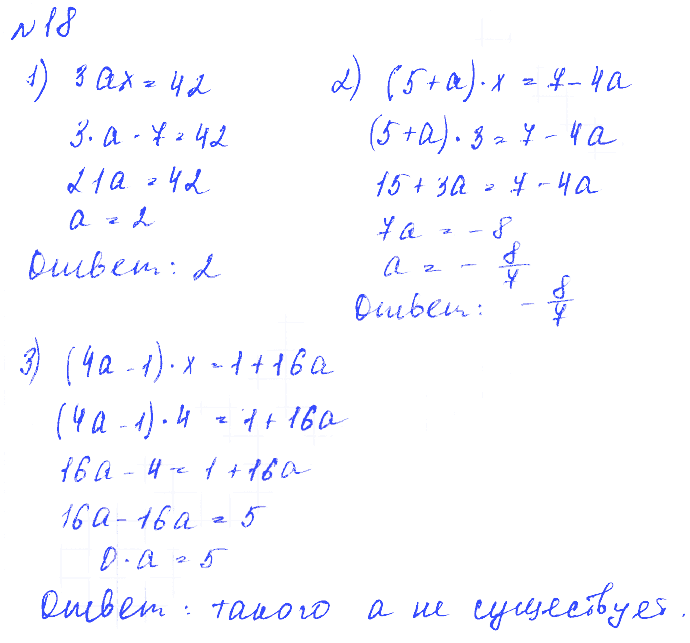 №18
1) 3ax = 42
3·a·7 = 42
21a = 42
a = 2
Ответ: 2
2) (5+a)·x = 7-4a
(5+a)·3 = 7-4a
15+3a = 7-4a
7a = -8
a = -8/7
Ответ: -8/7
3) (4a-1)·x = 1+16a
(4a-1)·4 = 1+16a
16a-4 = 1+16a
16a-16a = 5
0·a = 5
Ответ: такого a не существует.